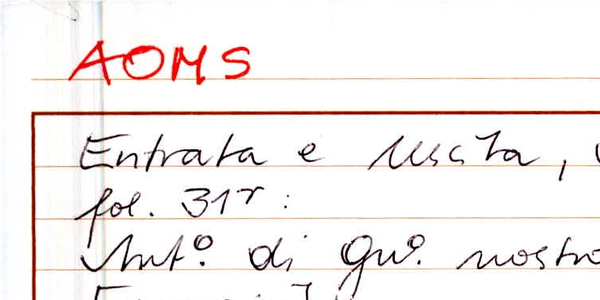 AOMS
Entrata e Uscita,
fol. 31r:
Ant.º di Gu.º nostro